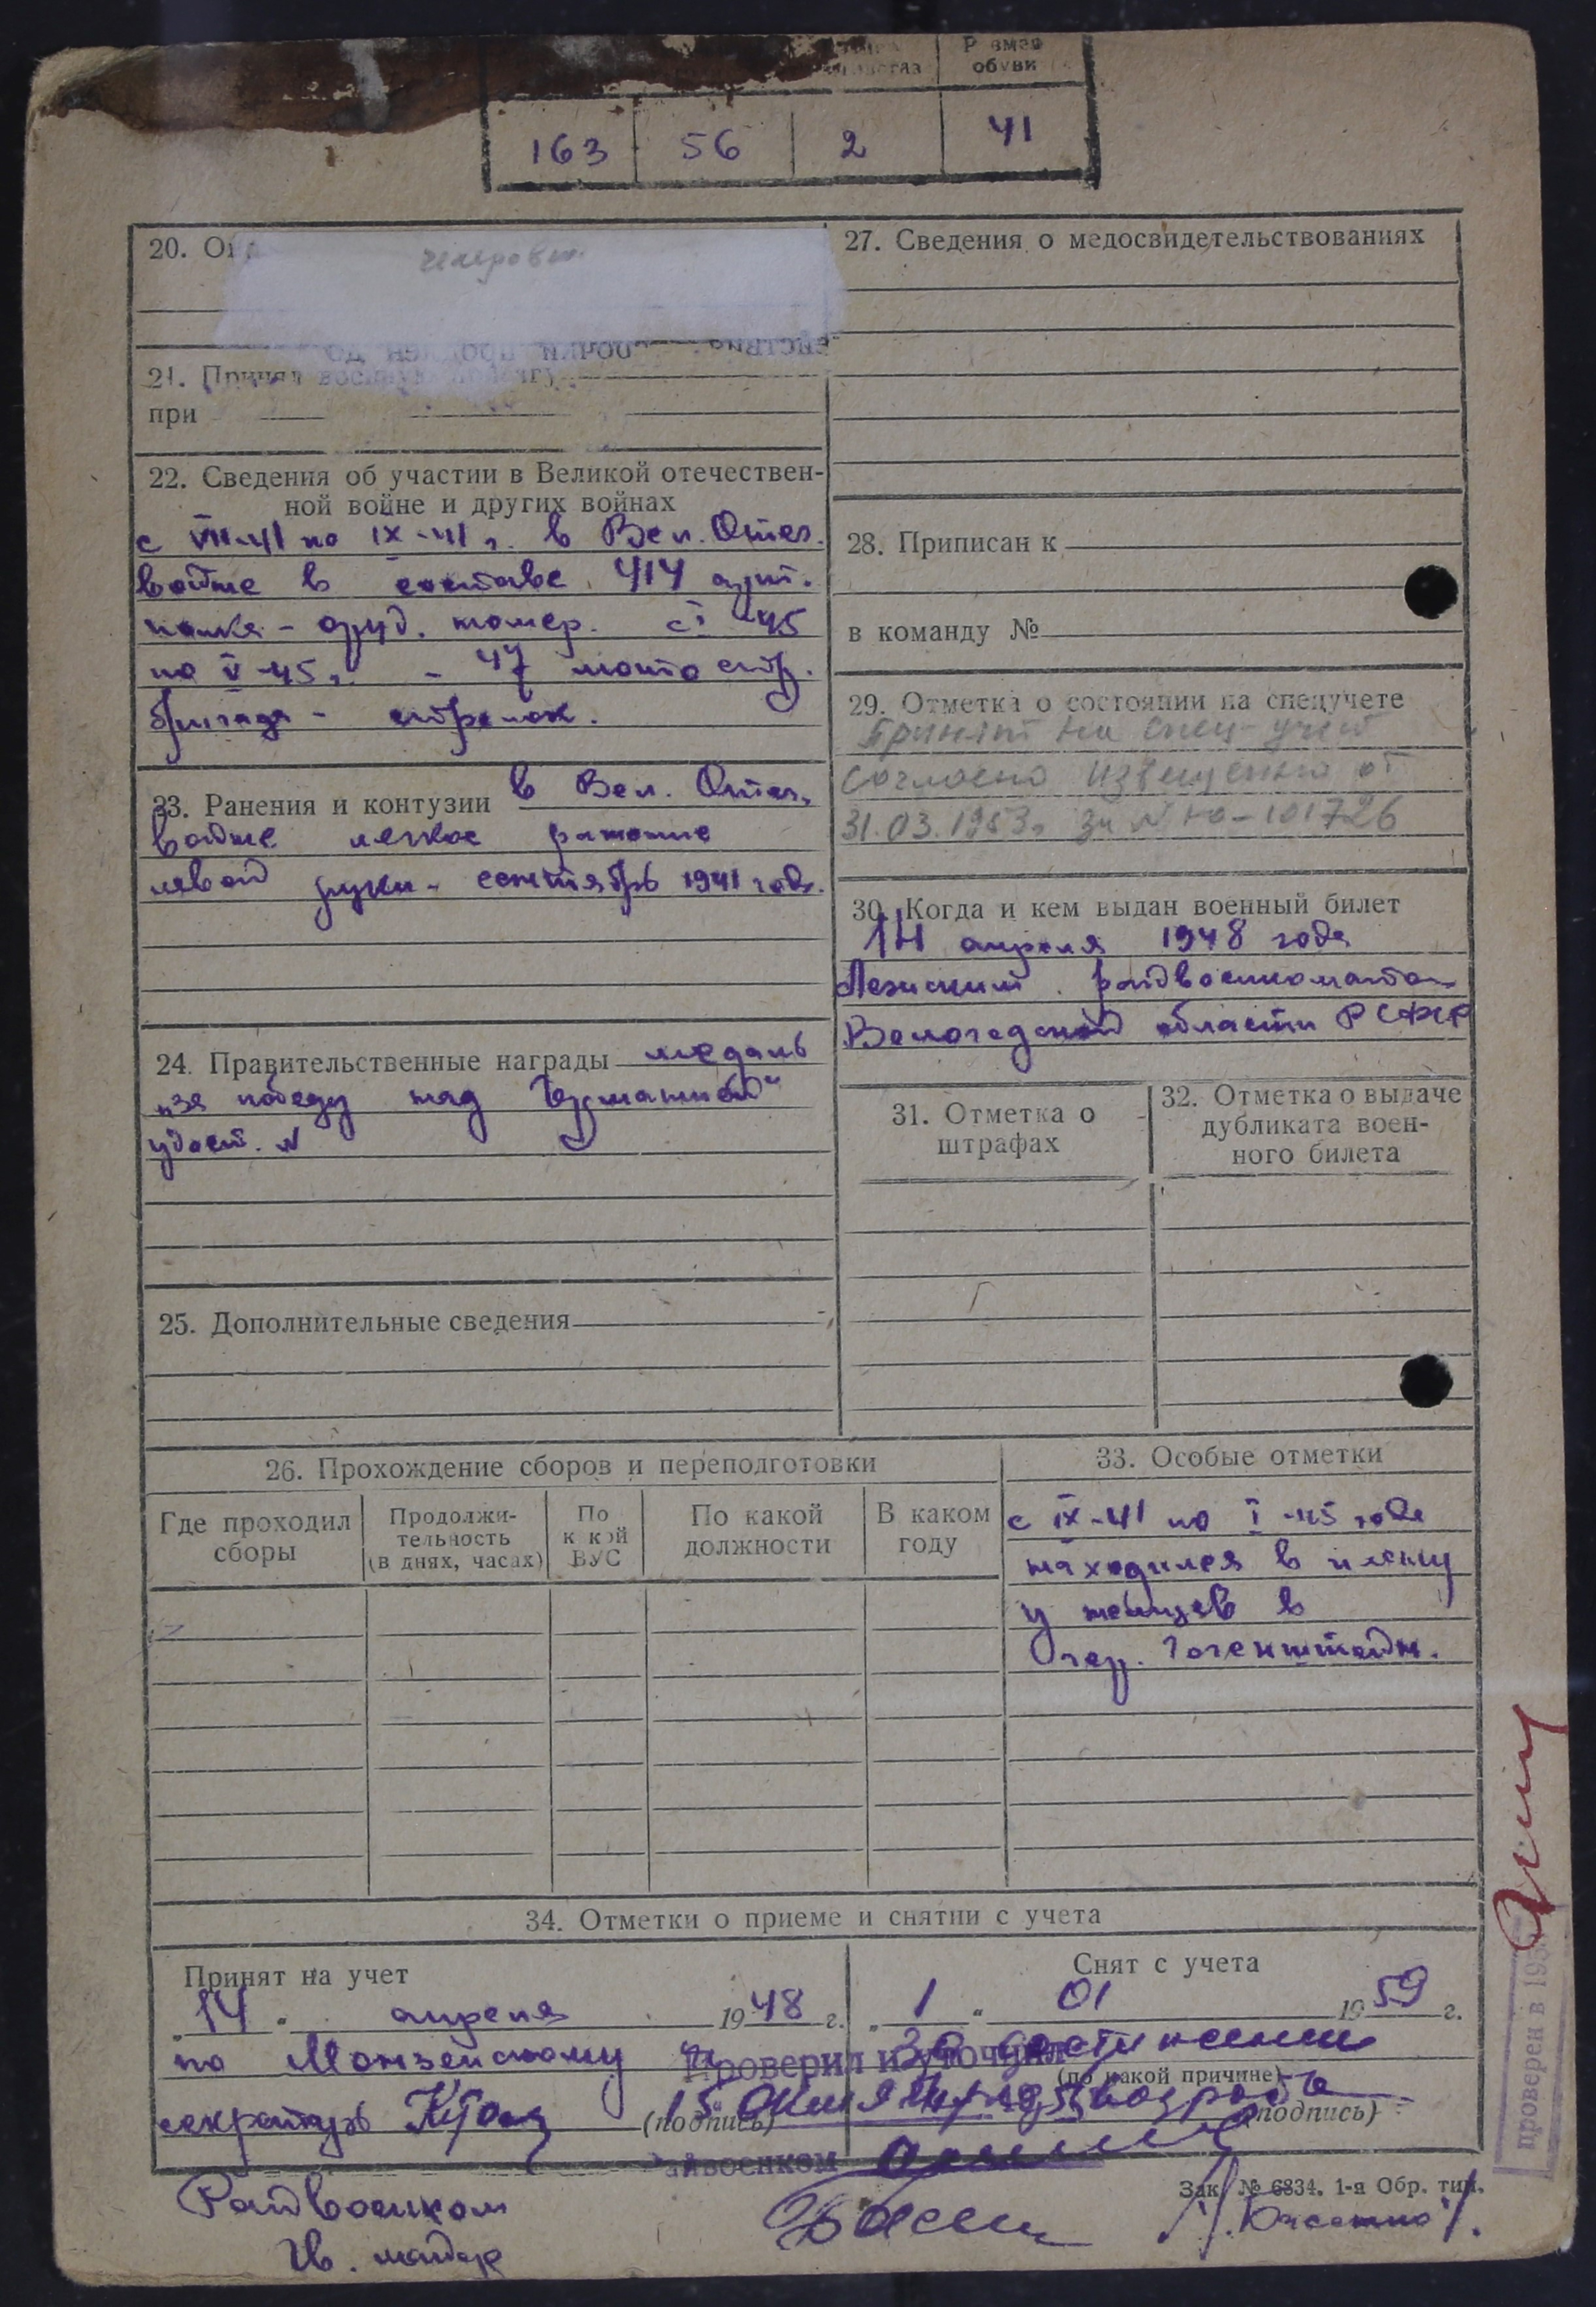 обуви
163 56 2 41
20.
21. Принял военную присягу
при
22. Сведения об участии в Великой отечествен-
ной войне и других войнах
с VII-41 по IX-41 г. в Вел. Отеч.
войне в составе 414 арт.
полка - оруд. номер. с I-45
по V-45 г. - 47 мото стр.
бригада - стрелок.
23. Ранения и контузии в Вел. Отеч.
войне легкое ранение
левой руки - сентябрь 1941 года.
24. Правительственные награды медаль
„за победу над Германией“
удост. №
25. Дополнительные сведения
27. Сведения о медосвидетельствованиях
28. Приписан к
в команду №
29. Отметка о состоянии на спецучете
Принят на спец-учет
согласно извещения от
31.03.1953г. за № Ю-101726
30. Когда и кем выдан военный билет
14 апреля 1948 года
райвоенкоматом
Вологодской области РСФСР
31. Отметка о
штрафах
32. Отметка о выдаче
дубликата воен-
ного билета
26. Прохождение сборов и переподготовки
Где проходил
сборы
Продолжи-
тельность
(в днях, часах)
По
какой
ВУС
По какой
должности
В каком
году
33. Особые отметки
с IX-41 по I-45 года
находился в плену
у немцев в
гор. Гогенштейн.
34. Отметки о приеме и снятии с учета
Принят на учет
„14“ апреля 1948 г.
по Монзенскому
секретарь
(подпись)
Снят с учета
„1“ 01 1959 г.
по достижении
(по какой причине)
возраста
(подпись)
Проверил и уточнил
15
Райвоенком
Райвоенком
Гв. майор
Зак. № 6834. 1-я Обр. тип.
проверен в 195